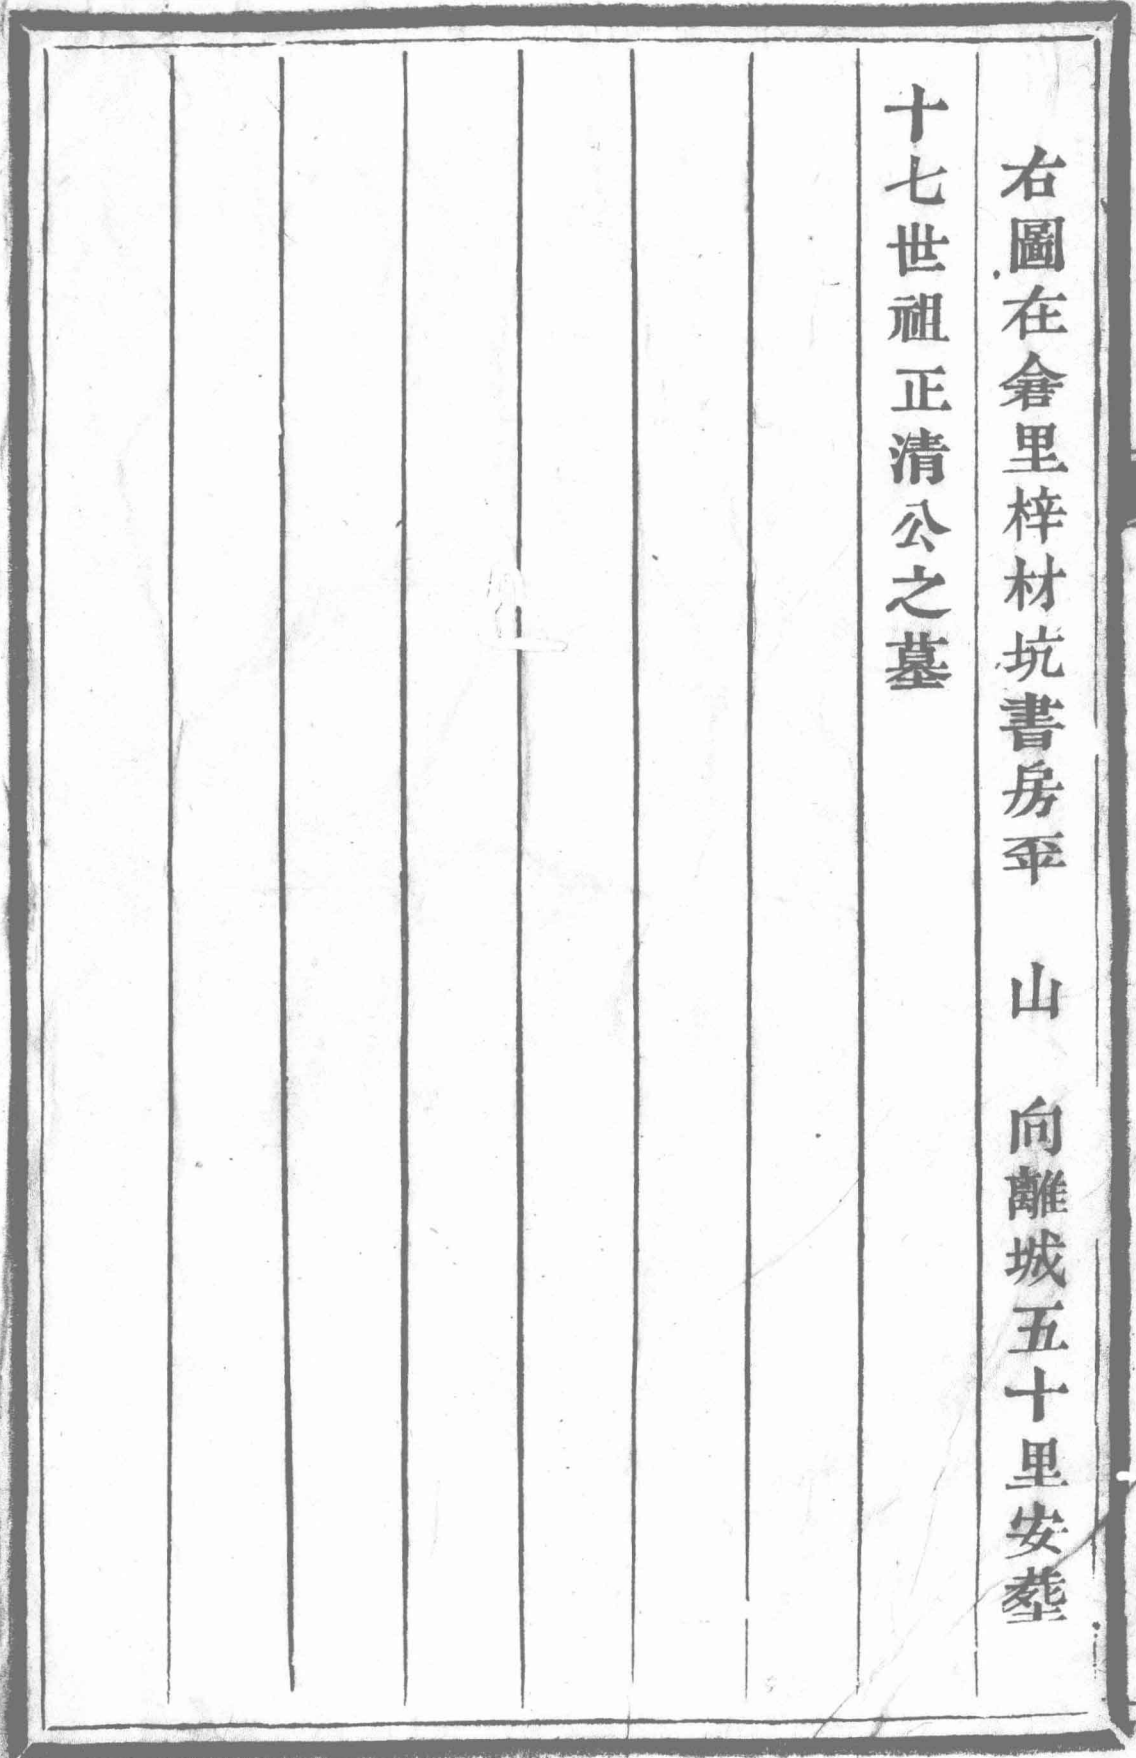 右圖在倉里梓材坑書房坪　山　向離城五十里安塟
十七世祖正清公之墓